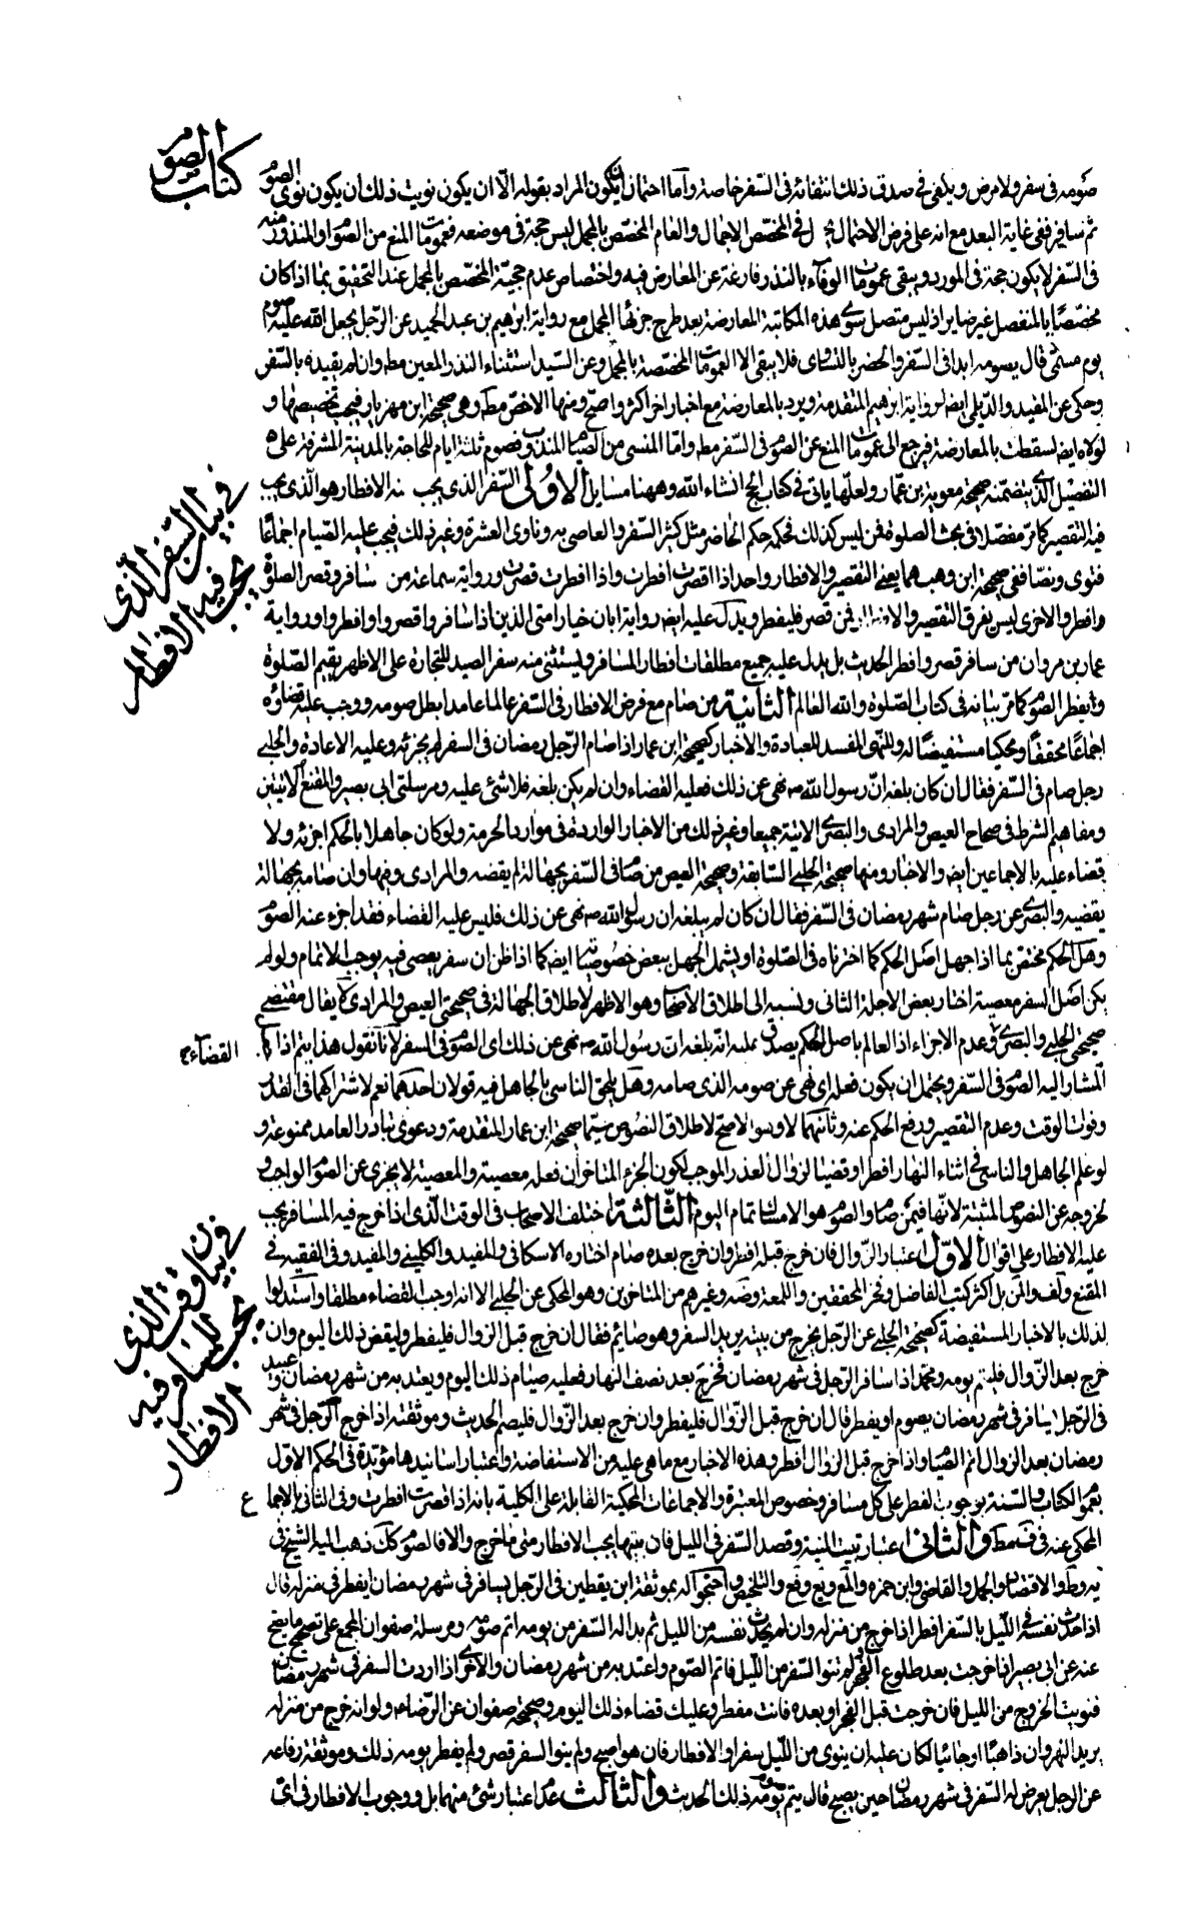 كتاب الصوم
صومه فى سفر ولا مرض ويكفى فى صدق ذلك انتفائه فى السّفر خاصة وامّا احتمال ان يكون المراد بقوله الّا ان يكون نويت ذلك ان يكون نوى الصوم
ثم سافر ففى غاية البعد مع انه على فرض الاحتمال فى المخصّص الاجمال والعام المخصّص بالمجمل ليس حجة فى موضعه فعمومات المنع من الصوم او المنذور منه
فى السّفر لا يكون حجة فى المورد ويبقى عمومات الوفاء بالنذر فارغة عن المعارض فيه واختصاص عدم حجيّة المخصّص بالمجمل عند التحقيق بما اذا كان
مخصّصًا بالمنفصل غير ضاير اذ ليس متصل سوى هذه المكاتبة المعارضة بعد طرح جزئها المجمل مع رواية ابرهيم بن عبد الحميد عن الرّجل يجعل الله عليه صوم
يوم مسمّى قال يصومه ابدا فى السّفر والحضر بالتساوى فلا يبقى الا العمومات المخصّصة بالمجمل وعن السّيد استثناء النذر المعين مطه وان لم يقيده بالسّفر
وحكى عن المفيد والدّيلمى ايضه لرواية ابرهيم المتقدمة ويرد بالمعارضة مع اخبار اخر اكثر واصحّ ومنها الاخصّ مطه وهى صحيحة ابن مهزيار فيجب تخصيصها و
لولاه ايضه لسقطت بالمعارضة فيرجع الى عمومات المنع عن الصوم فى السّفر مطه وامّا المنسى من الصيام المندوب فصوم ثلثة ايام للحاجة بالمدينة المشرفة على
التفصيل الذى يتضمنه صحيحة معوية بن عمّار ولعلّها ياتى فى كتاب الحج انشاء الله وههنا مسايل الاولى السّفر الذى يجب فيه الافطار هو الّذى يجب
فيه التقصير كما مرّ مفصّلا فى بحث الصلوة فمن ليس كذلك فحكمه حكم الحاضر مثل كثير السّفر والعاصى به وناوى العشرة وغير ذلك فيجب عليه الصّيام اجماعًا
فتوى ونصّا ففى صحيحة ابن وهب هما يعنى التقصير والافطار واحد اذا قصرت افطرت واذا افطرت قصرت ورواية سماعة من سافر وقصر الصلوة
وافطر والاخرى ليس يفرق التقصير والافطار فمن قصر فليفطر ويدلّ عليه ايضه رواية ابان خيار امتى الذين اذا سافروا قصروا وافطروا ورواية
عمار بن مروان من سافر قصر وافطر الحديث بل يدل عليه جميع مطلقات افطار المسافر ويستثنى منه سفر الصيد للتجارة على الاظهر يقيم الصّلوة
ويفطر الصوم كما مرّ بيانه فى كتاب الصّلوة والله العالم الثانية من صام مع فرض الافطار فى السّفر عالما عامدا بطل صومه ووجب عليه قضاؤه
اجماعًا محققًا ومحكيا مستفيضًا له وللنهى المفسد للعبادة والاخبار كصحيحة ابن عمار اذا صام الرّجل رمضان فى السفر لم يجزئه وعليه الاعادة والحلبى
رجل صام فى السّفر فقال ان كان بلغه انّ رسول الله ص نهى عن ذلك فعليه القضاء وان لم يكن بلغه فلا شئ عليه ومرسلتى ابى بصير والمقنع الاتيتين
ومفاهيم الشرط فى صحاح العيص والمرادى والبصرى الاتية جميعا وغير ذلك من الاخبار الواردة فى موارد الحرمة ولو كان جاهلا بالحكم اجزئه ولا
قضاء عليه بالاجماعين ايضه والاخبار ومنها صحيحة الحلبى السّابقة وصحيحة العيص من صام فى السّفر بجهالة لم يقضه والمرادى وفيها وان صامه بجهالة لم
يقضيه والبصرى عن رجل صام شهر رمضان فى السّفر فقال ان كان لم يبلغه ان رسول الله ص نهى عن ذلك فليس عليه القضاء فقد اجزء عنه الصوم
وهل الحكم مختص بما اذا جهل اصل الحكم كما اخترناه فى الصّلوة او يشمل الجهل ببعض خصوصياته ايضه كما اذا ظن ان سفر يعصى فيه يوجب الاتمام ولو لم
يكن اصل السفر معصية اختار بعض الاجلة الثانى ونسبه الى اطلاق الاصحاب وهو الاظهر لاطلاق الجهالة فى صحيحتى العيص والمرادى لا يقال مقتضى
صحيحتى الحلبى والبصرى عدم الاجزاء اذ العالم باصل الحكم يصدق عليه انه بلغه ان رسول الله ص نهى عن ذلك اى الصوم فى السفر لانّا نقول هذا يتم اذا كان
القضاء
المشار اليه الصوم فى السّفر ويحتمل ان يكون فعله اى نهى عن صومه الذى صامه وهل يلحق الناسى بالجاهل فيه قولان احدهما نعم لاشتراكهما فى العذر
وفوات الوقت وعدم التقصير ورفع الحكم عنه وثانيهما لا وهو الاصح لاطلاق النصوص سيّما صحيحة ابن عمار المتقدمة ودعوى تبادر العامد ممنوعة و
لو علم الجاهل والناسى فى اثناء النهار افطر وقضيا لزوال العذر الموجب لكون الجزء المتاخر ان فعله معصية والمعصية لا يجزى عن الصوم الواجب و
لخروجه عن النصوص المثبتة لانّها فيمن صام والصوم هو الامساك تمام اليوم الثّالثة اختلف الاصحاب فى الوقت الّذى اذا خرج فيه المسافر يجب
عليه الافطار على اقوال الاوّل اعتبار الزّوال فان خرج قبله افطر وان خرج بعده صام اختاره الاسكافى والمفيد والكلينى والمفيد وفى الفقيه فى
المقنع ولف والمن بل اكثر كتب الفاضل وفخر المحققين واللمعة وضه وغيرهم من المتاخرين وهو المحكى عن الحلبى الا انه اوجب القضاء مطلقا واستدلوا
لذلك بالاخبار المستفيضة كصحيحة الحلبى عن الرّجل يخرج من بيته يريد السفر وهو صائم فقال ان خرج قبل الزوال فليفطر وليقض ذلك اليوم وان
خرج بعد الزّوال فليتم يومه ومحمد اذا سافر الرّجل فى شهر رمضان فخرج بعد نصف النهار فعليه صيام ذلك اليوم ويعتد به من شهر رمضان وعبيد
فى الرّجل يسافر فى شهر رمضان يصوم او يفطر قال ان خرج قبل الزّوال فليفطر وان خرج بعد الزّوال فليصم الحديث وموثقته اذا خرج الرّجل فى شهر
رمضان بعد الزوال اتم الصّيام واذا خرج قبل الزوال افطر وهذه الاخبار مع ما هى عليه من الاستفاضة واعتبار اسانيدها مؤيّدة فى الحكم الاوّل
بعموم الكتاب والسّنة بوجوب الفطر على كل مسافر وخصوص المعتبرة والاجماعات المحكية القابلة على الكلية بانه اذا قصرت افطرت وفى الثانى بالاجماع
المحكى عنه فى ف مطه والثانى اعتبار تبييت النية وقصد السّفر فى الليل فان بيتها يجب الافطار متى ما خرج والا فالصوم كك ذهب اليه الشيخ فى
يه وط والاقتصاد والجمل والقاضى وابن حمزه والمع ويع وفع والتلخيص واحتجوا له بموثقة ابن يقطين فى الرّجل يسافر فى شهر رمضان ايفطر فى منزله قال
اذا حدّث نفسه فى اللّيل بالسّفر افطر اذا خرج من منزله وان لم يحدّث نفسه من الليل ثم بدا له السّفر من يومه اتم صومه ومرسلة صفوان المجمع على تصحيح ما يصح
عنه عن ابى بصير اذا خرجت بعد طلوع الفجر ولم تنو السّفر من اللّيل فاتم الصّوم واعتد به من شهر رمضان والاخرى اذا اردت السفر فى شهر رمضان
فنويت الخروج من الليل فان خرجت قبل الفجر او بعده فانت مفطر وعليك قضاء ذلك اليوم وصحيحة صفوان عن الرّضاء ولو انه خرج من منزله
يريد النهروان ذاهبًا او جائيا لكان عليه ان ينوى من اللّيل سفرا والافطار فان هو اصبح ولم ينو السفر قصر ولم يفطر يومه ذلك وموثقة رفاعه
عن الرجل يعرض له السّفر فى شهر رمضان حين يصبح قال يتم صومه يومه ذلك الحديث والثالث عدم اعتبار شئ منهما بل ووجوب الافطار فى اى
فى بيان السّفر الّذى
يجب فيه الافطار
فى بيان وقت الذى
يجب للمسافر فيه
الافطار